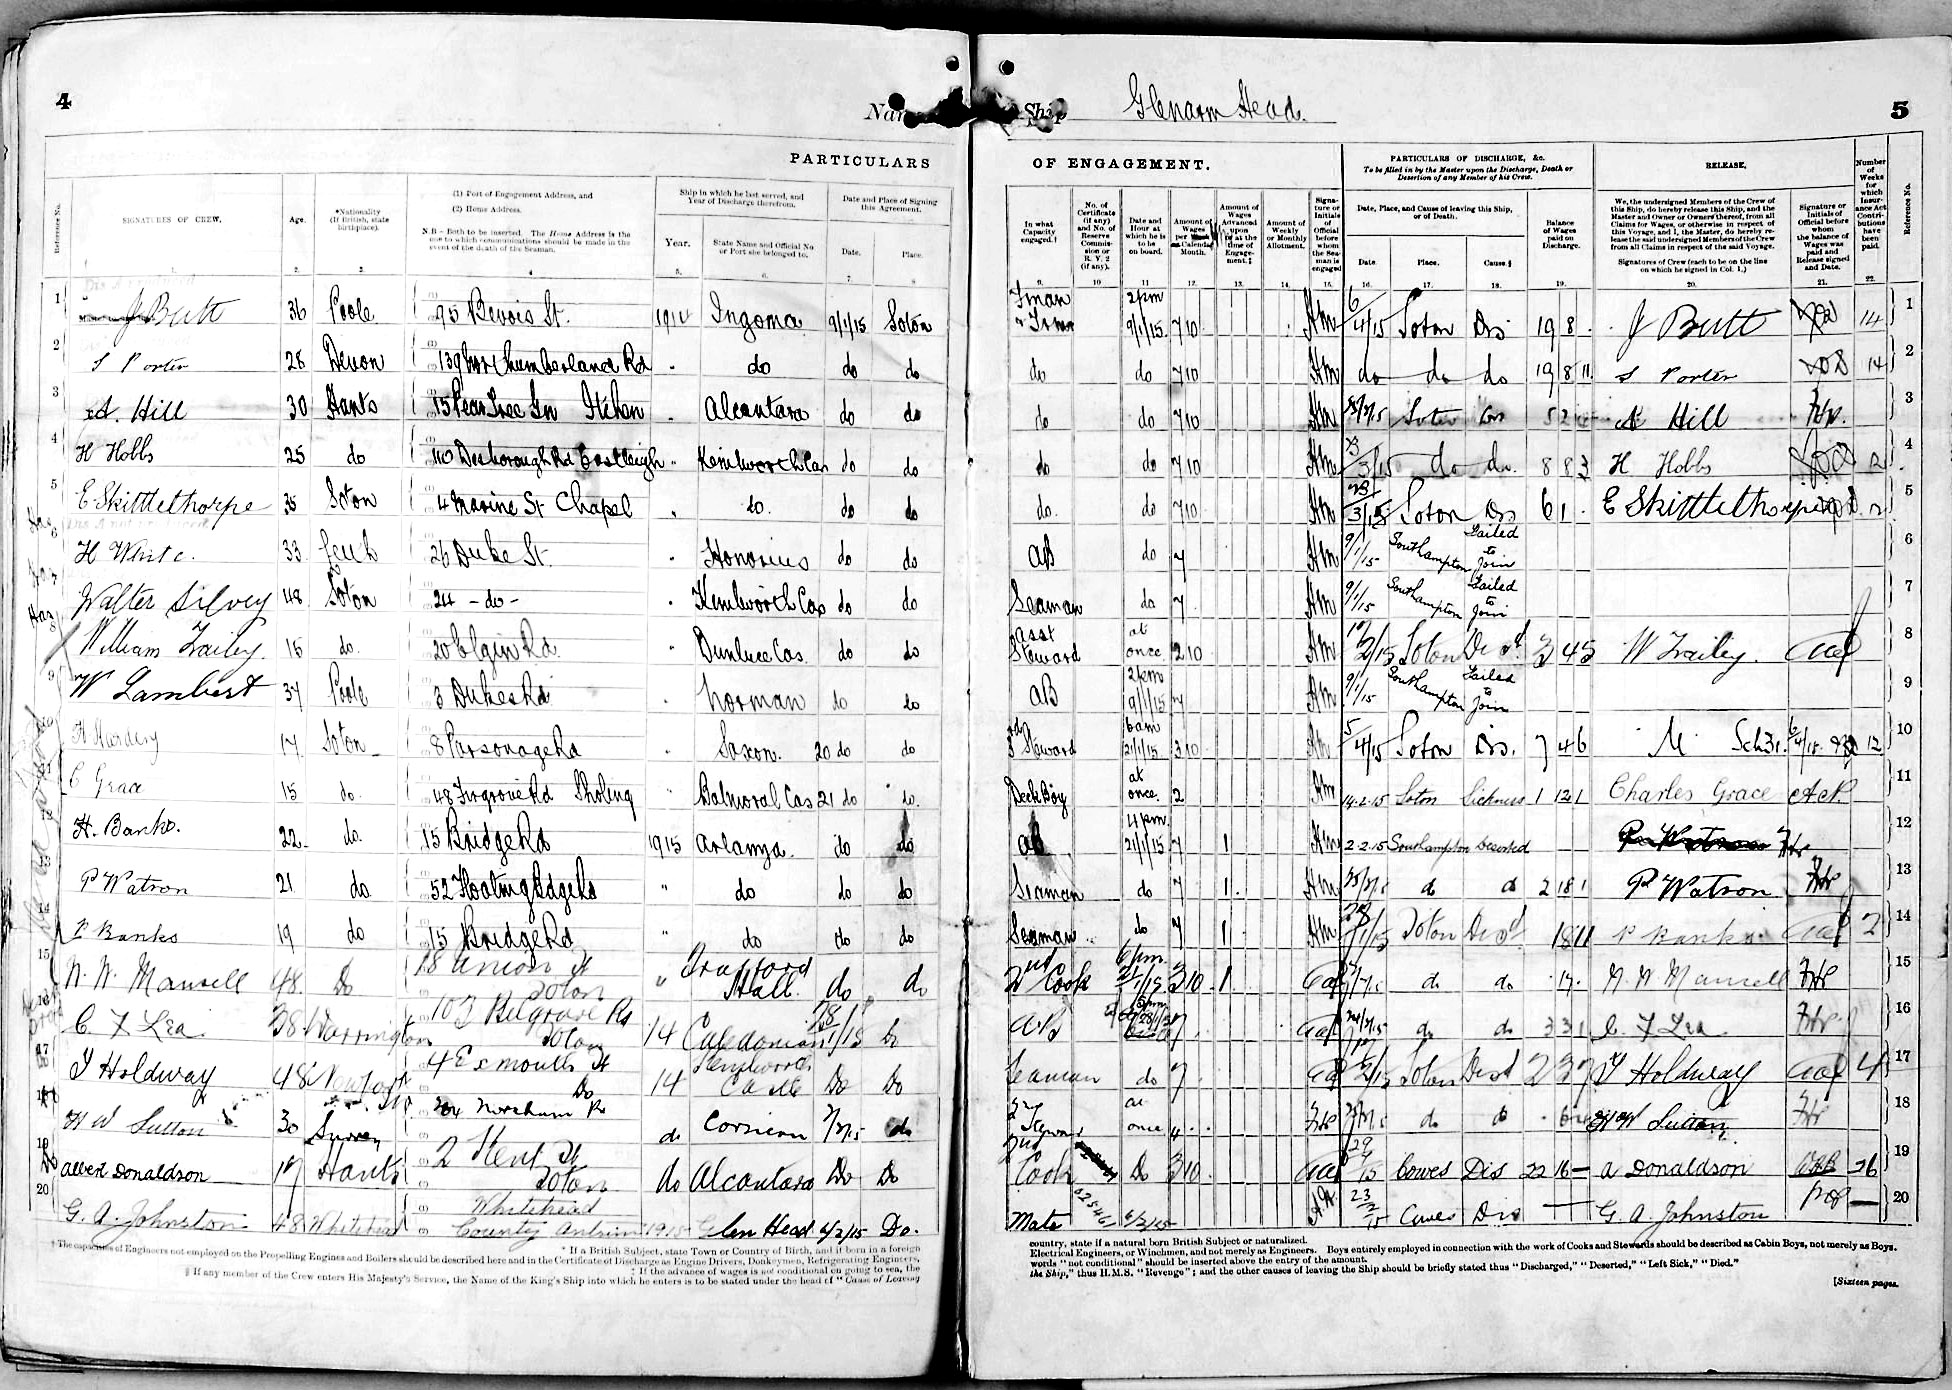 4
Name of Ship Glenarm Head.
5
PARTICULARS OF ENGAGEMENT.
PARTICULARS OF DISCHARGE, &c.
To be filled in by the Master upon the Discharge, Death or Desertion of any Member of his Crew.
RELEASE.
Reference No.
SIGNATURES OF CREW.
Age.
*Nationality (If British, state birthplace).
(1) Port of Engagement Address, and
(2) Home Address.
N.B – Both to be inserted. The Home Address is the one to which communications should be made in the event of the death of the Seaman.
Ship in which he last served, and Year of Discharge therefrom.
Year.
State Name and Official No or Port she belonged to.
Date and Place of Signing this Agreement.
Date.
Place.
In what Capacity engaged.†
No. of Certificate (if any) and No. of Reserve Commission or R.V.2 (if any).
Date and Hour at which he is to be on board.
Amount of Wages per Calendar Month.
Amount of Wages Advanced upon or at the time of Engagement.‡
Amount of Weekly or Monthly Allotment.
Signature or Initials of Official before whom the Seaman is engaged
Date, Place, and Cause of leaving this Ship, or of Death.
Date.
Place.
Cause.§
Balance of Wages paid on Discharge.
We, the undersigned Members of the Crew of this Ship, do hereby release this Ship, and the Master and Owner or Owners thereof, from all Claims for Wages, or otherwise in respect of this Voyage, and I, the Master, do hereby release the said undersigned Members of the Crew from all Claims in respect of the said Voyage.
Signatures of Crew (each to be on the line on which he signed in Col. 1.)
Signature or Initials of Official before whom the balance of Wages was paid and Release signed and Date.
Number of Weeks for which Insurance Act Contributions have been paid
Reference No.
1 J Butt 36 Poole 95 Bevois St. 1914 Ingoma 9/1/15 Soton 2pm 9/1/15 7 10 Hm 6/4/15 Soton Dis 19 8 J Butt 14 1
2 S Porter 28 Devon 139 Northumberland Rd do do do do do 7 10 Hm do do do 19 8 11 S Porter 14 2
3 A. Hill 30 Hants 15 Pear Tree Gn Itchen Alcantara do do do do 7 10 Hm Soton Dis A Hill 3
4 H Hobbs 25 do 110 Desborough Rd Eastleigh Kenilworth Cas do do do do 7 10 Hm 3/15 do do. 8 8 3 H Hobbs 4
5 E Skittlethorpe 35 Soton 4 Marine St Chapel do. do do do. do 7 10 Hm 3/15 Soton Dis 6 1 E Skittlethorpe 5
6 H White. 33 26 Duke St. Honorius do do AB do 7 Hm 9/1/15 Southampton Failed to Join 6
7 Walter Silvey 48 Soton 24 – do – Kenilworth Cas do do Seaman do 7 Hm 9/1/15 Southampton Failed to Join 7
8 William Trailey. 15 do. 20 Elgin Rd. Dunluce Cas. do do Asst Steward at once 2 10 Hm 2/15 Soton Disd 3 4 5 W Trailey. 8
9 W Lambert 37 Poole 3 Dukes Rd Norman do do AB 2pm 9/1/15 7 Hm 9/1/15 Southampton Failed to Join 9
10 17 Soton 8 Parsonage Rd Saxon. 20 do do Steward 6am 21/1/15 3 10 Hm 5/4/15 Soton Dis. 7 4 6 12 10
11 C Grace 15 do. 48 Firgrove Rd Sholing Balmoral Cas 21 do do. Deck Boy at once. 2 Hm 14.2.15 Soton Sickness 1 12 1 Charles Grace 11
12 H. Banks. 22 do. 15 Bridge Rd 1915 Arlanza. do do AB 4pm 21/1/15 7 1 Hm 2-2-15 Southampton Deserted 12
13 P Watson 21 do 52 " do do do Seaman do 7 1 Hm do do 2 18 1 P Watson 13
14 P Banks 19 do 15 Bridge Rd " do do do Seaman do 7 1 Hm 1/15 Soton Disd 18 11 P Banks 2 14
15 W. W. Mansell 48 Do 18 Union St Soton " Trafford Hall. do do 2nd Cook 6pm 3 10 1 do do 17 W. W Mansell 15
16 C F Lea 38 Warrington Belgrave Rd Soton 14 Caledonian 28/1/15 Do AB 7 do do 3 3 1 C. F Lea 16
17 T Holdway 48 4 Exmouth St Do 14 Kenilworth Castle Do Do Seaman do 7 2/15 Soton Disd 2 3 7 T Holdway 4 17
18 H W Sutton 30 Surrey Horsham Rd do Corsican do at once do do H W Sutton 18
19 Albert Donaldson 17 Hants 2 Kent St Soton do Alcantara Do Do 2nd Cook Do 3 10 Cowes Dis 22 16 – A Donaldson 26 19
20 G. A. Johnston 48 Whitehead Whitehead County Antrim 1915 Glen Head 6/2/15 Do. Mate 6/2/15 Cowes Dis – G. A. Johnston – 20
† The capacities of Engineers not employed on the Propelling Engines and Boilers should be described here and in the Certificate of Discharge as Engine Drivers, Donkeymen, Refrigerating Engineers, Electrical Engineers, or Winchmen, and not merely as Engineers. Boys entirely employed in connection with the work of Cooks and Stewards should be described as Cabin Boys, not merely as Boys.
* If a British Subject, state Town or Country of Birth, and if born in a foreign country, state if a natural born British Subject or naturalized.
‡ If the advance of wages is not conditional on going to sea, the words "not conditional" should be inserted above the entry of the amount.
§ If any member of the Crew enters His Majesty's Service, the Name of the King's Ship into which he enters is to be stated under the head of "Cause of Leaving the Ship," thus H.M.S. "Revenge"; and the other causes of leaving the Ship should be briefly stated thus "Discharged," "Deserted," "Left Sick," "Died."
[Sixteen pages.